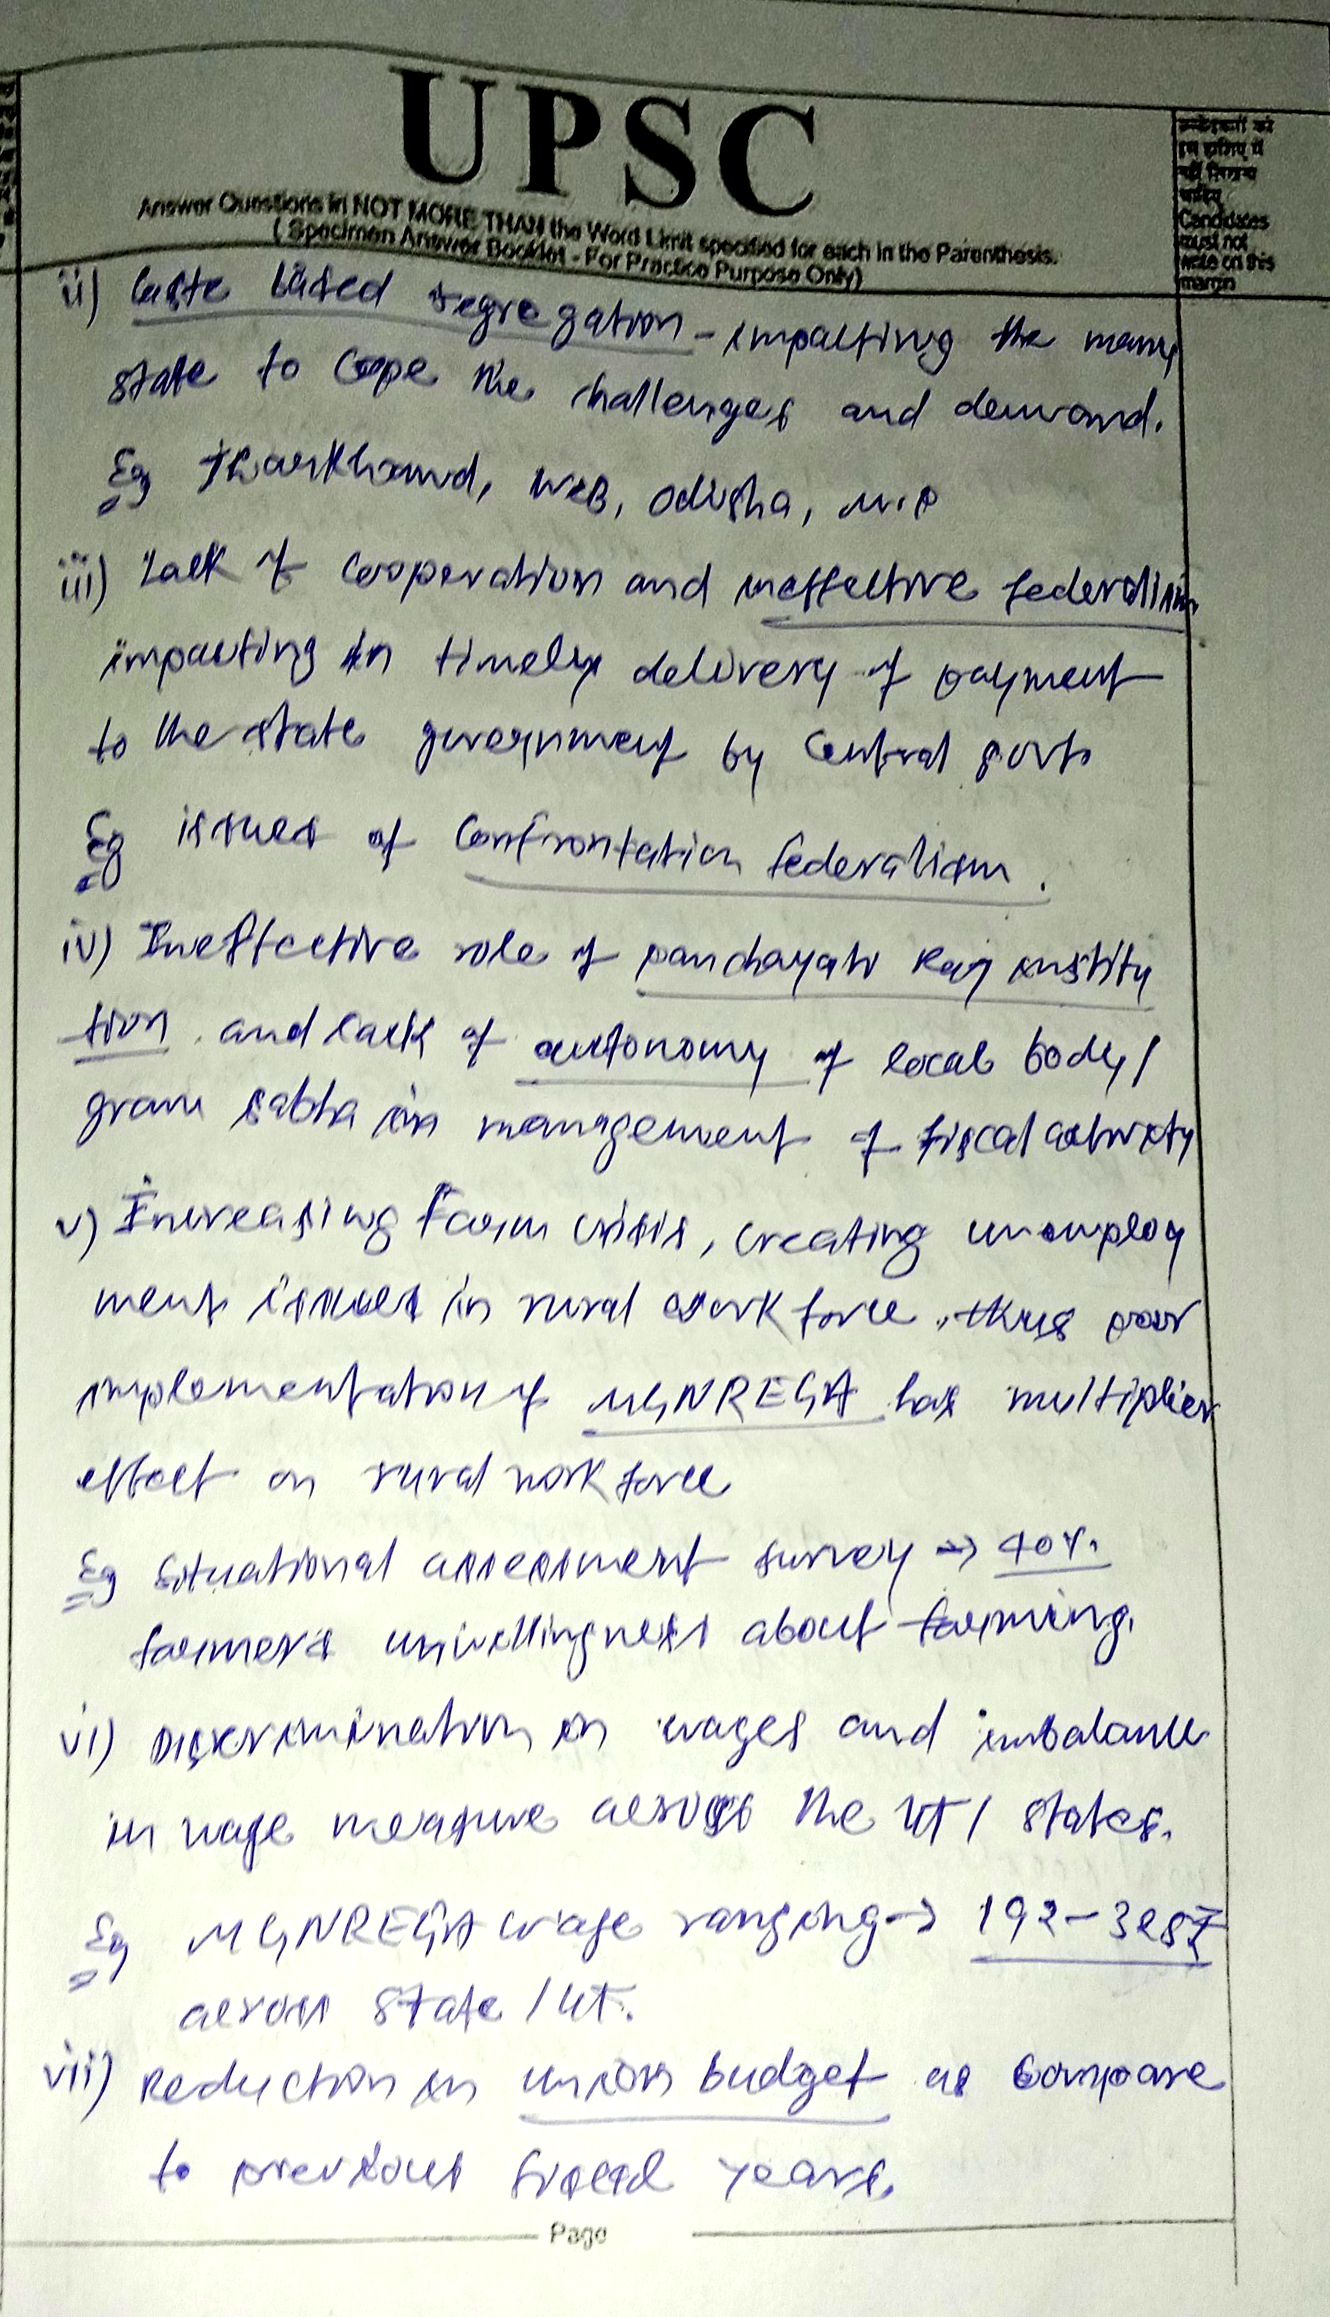 UPSC
Answer Questions in NOT MORE THAN the Word Limit specified for each in the Parenthesis.
( Specimen Answer Booklet - For Practice Purpose Only)
उम्मीदवारों को
इस हाशिए में
नहीं लिखना
चाहिए
Candidates
must not
write on this
margin
ii) Caste based segregation - impacting the many
state to cope the challenges and demand.
Eg Jharkhand, WB, Odisha, M.P
iii) Lack of cooperation and ineffective federalism
impacting in timely delivery of payment
to the state government by Central govt.
Eg issues of Confrontation federalism.
iv) Ineffective role of panchayati Raj institu
tion and lack of autonomy of local body/
gram sabha in management of fiscal activity
v) Increasing Farm crisis, creating unemploy
ment issues in rural work force, thus poor
implementation of MGNREGA has multiplier
effect on rural work force
Eg Situational assessment survey → 40%
farmers unwillingness about farming.
vi) Discrimination in wages and imbalance
in wage measure across the UT/ states.
Eg MGNREGA wage ranging →
across state/UT.
vii) Reduction in union budget as compare
to previous fiscal years.
Page